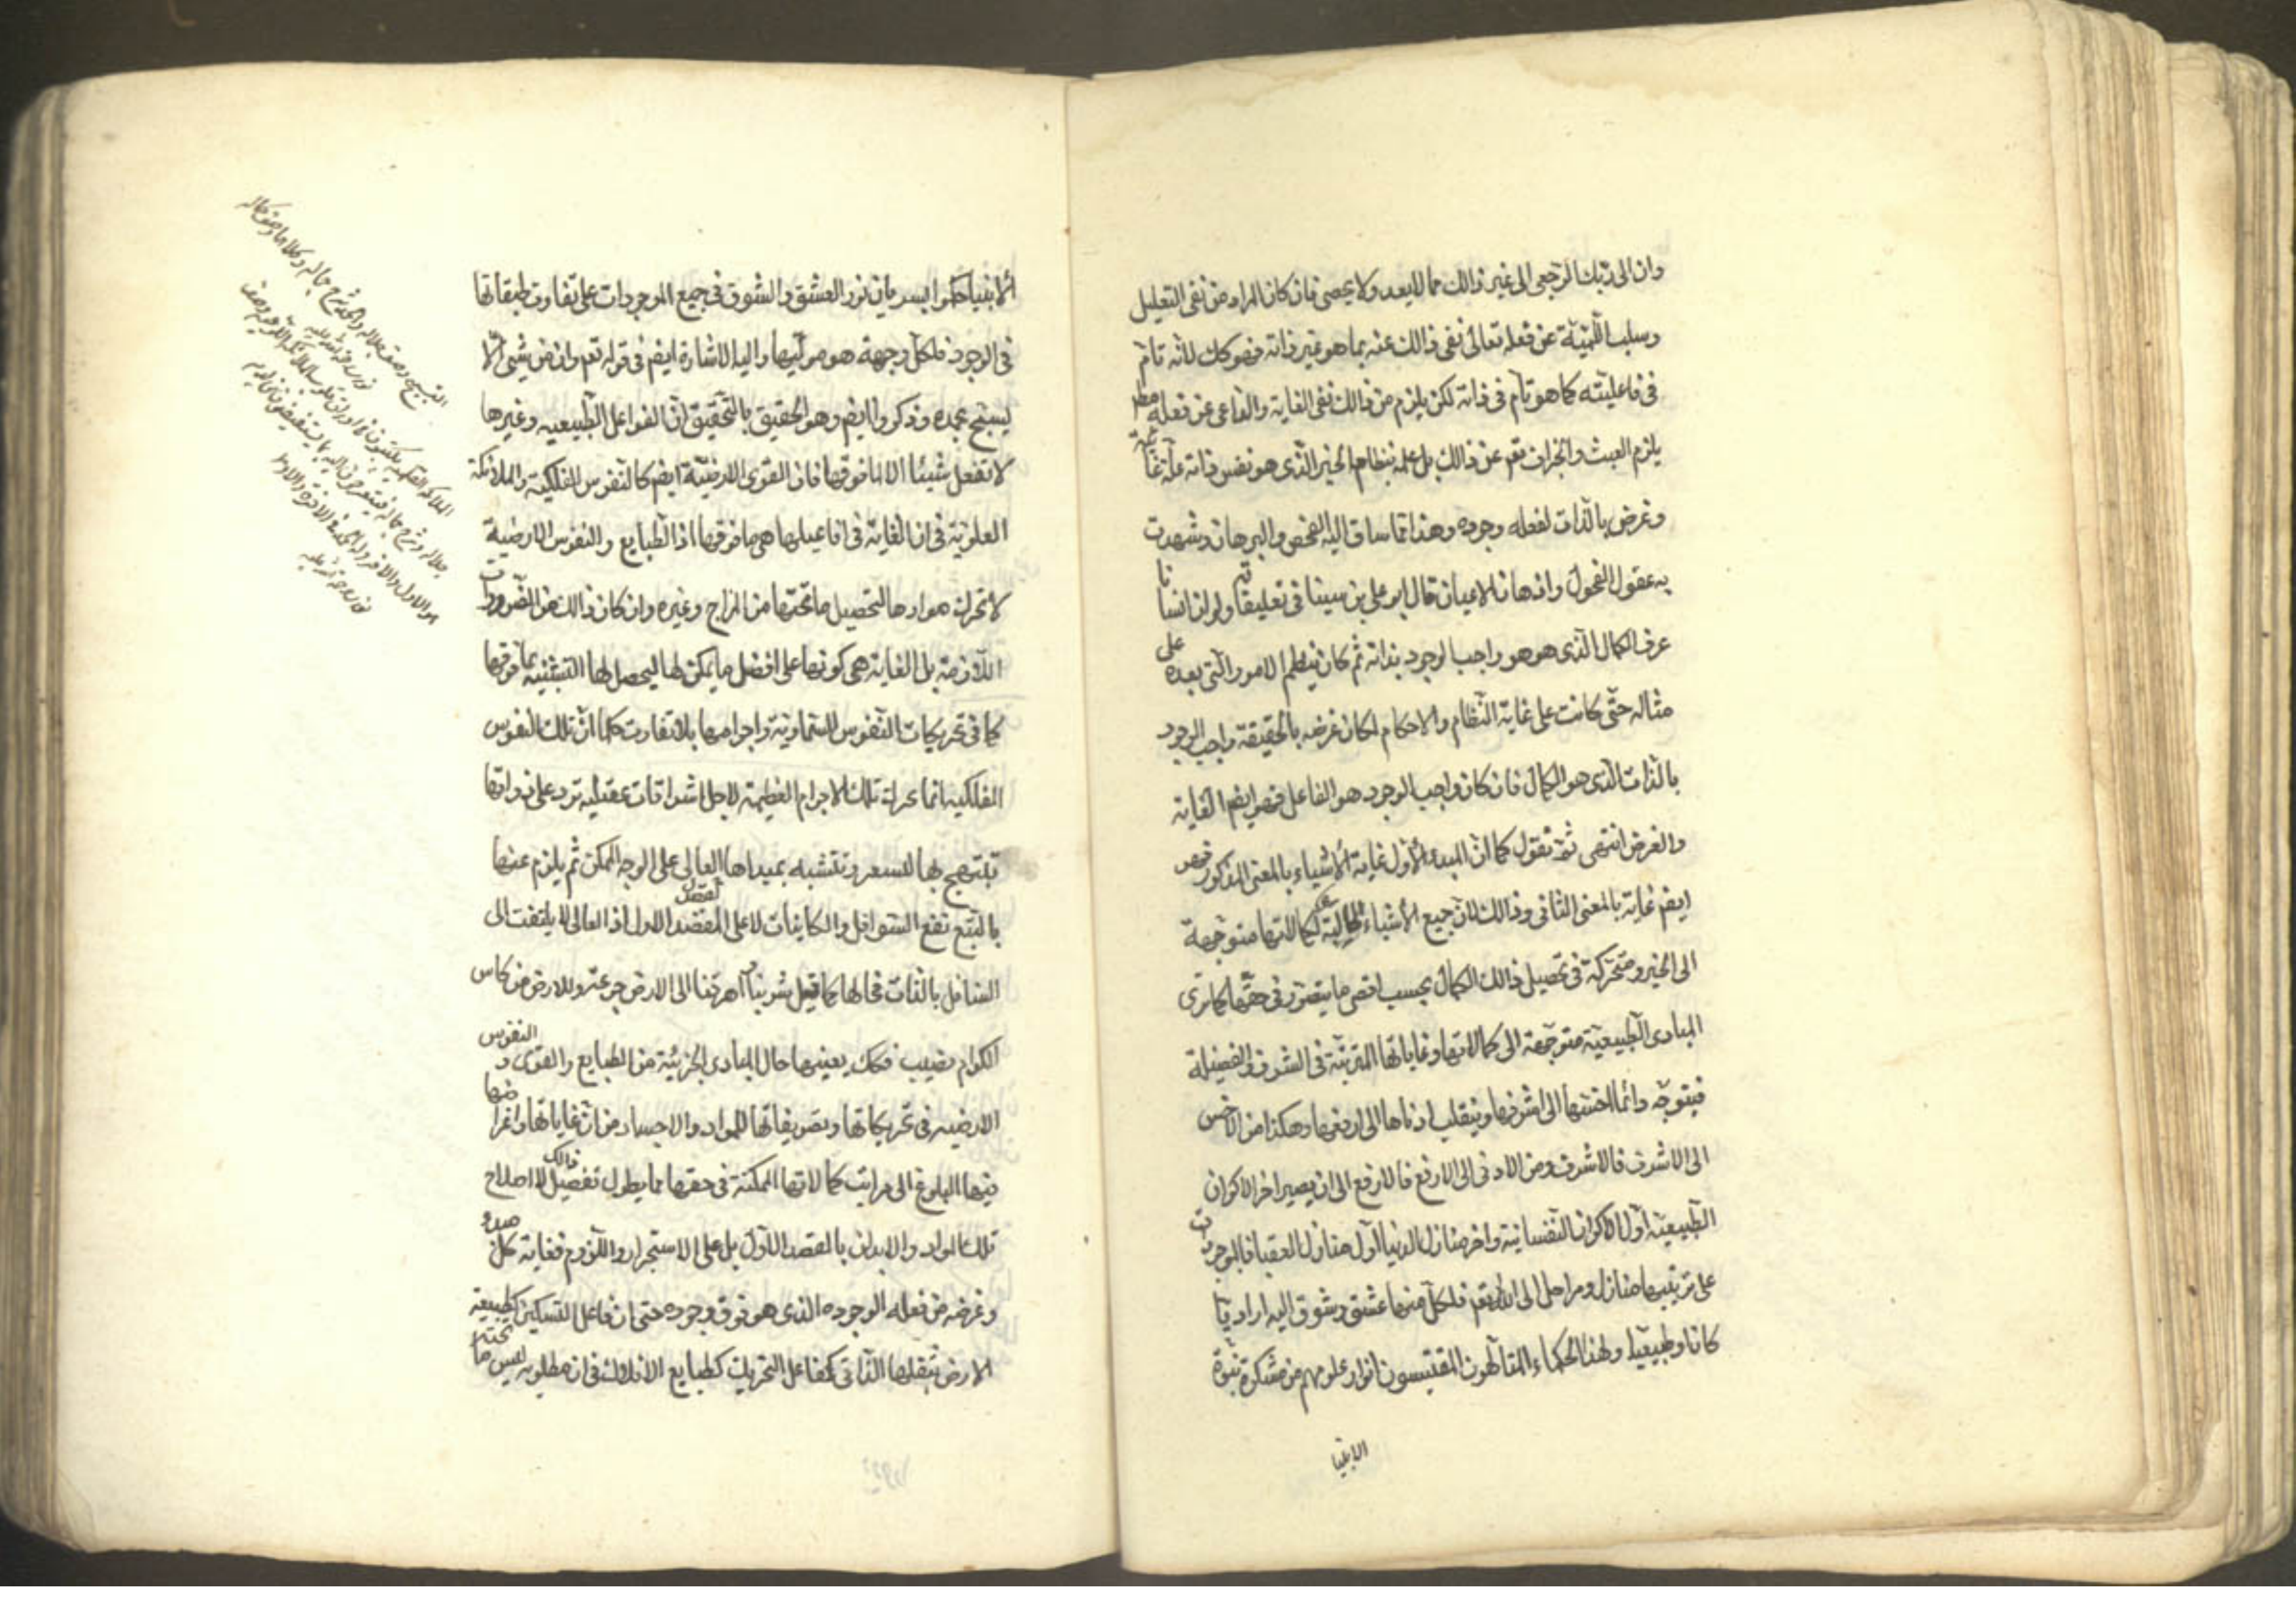 وان الى ربك الرجعى الى غير ذالك مما لايعد ولا يحصى فان كان المراد من نفى التعليل
وسلب اللميّة عن فعله تعالى نفى ذالك عنه بما هو غير ذاته فهو كك لانّه تامّ
فى فاعليّته كما هو تامّ فى ذاته لكن يلزم من ذالك نفى الغاية والداعى عن فعله مطلقا
يلزم العبث والجزاف تعم عن ذالك بل علمه بنظام الخير الّذى هو نفس ذاته علّة غائية
وغرض بالذات لفعله وجوده وهذا ممّا ساق اليه الفحص والبرهان وشهدت
به عقول الفحول واذهان الاعيان قال ابو على بن سينا فى تعليقاته ولو ان انسانا
عرف الكمال الّذى هو هو واجب الوجود بذاته ثم كان ينظم الامور الّتى بعده على
مثاله حتّى كانت على غاية النّظام والاحكام لكان غرضه بالحقيقة واجب الوجود
بالذات الّذى هو الكمال فان كان واجب الوجود هو الفاعل فهو ايضم الغاية
والغرض انتهى ثمّ نقول كما انّ المبدء الأوّل غاية الأشياء بالمعنى المذكور فهو
ايضم غاية بالمعنى الثانى وذالك لانّ جميع الأشياء طالبة لكمالاتها متوجهة
الى الخير ومتحركة فى تحصيل ذالك الكمال بحسب اقصى ما يتصوّر فى حقّها كما ترى
المبادى الطّبيعيّة متوجّهة الى كمالاتها وغاياتها المترتّبة فى الشرف والفضيلة
فيتوجّه دائما اخسّها الى اشرفها وينقلب ادناها الى ارفعها وهكذا من الاخس
الى الاشرف فالاشرف ومن الادنى الى الارفع فالارفع الى ان يصير اخر الاكوان
الطّبيعيّة اوّل الاكوان النّفسانية واخر منازل الدنيا اوّل منازل العقبا فالموجودات
على ترتيبها منازل ومراحل الى الله تعم فلكلّ منها عشق وشوق اليه اراديّا
كانا وطبيعيّا ولهذا الحكماء المتالّهون المقتبسون انوار علومهم من مشكوة نبوّة
الانبيا
ألانبياء حكموا بسريان نور العشق والشوق فى جميع الموجودات على تفاوت طبقاتها
فى الوجود فلكلّ وجهة هو مولّيها واليه الاشارة ايضم فى قوله تعم وان من شيئى الّا
يسبّح بحمده وذكروا ايضم وهو الحقيق بالتّحقيق انّ الفواعل الطّبيعيه وغيرها
لا تفعل شيئا الا لما فوقها فان القوى الارضيّة ايضم كالنّفوس الفلكية والملائكة
العلويّة فى ان الغاية فى افاعيلها هى ما فوقها اذ الطّبايع والنفوس الارضية
لا تحرك موادها لتحصيل ما تحتها من المزاج وغيره وان كان ذالك من الضّرورات
اللازمة بل الغاية هى كونها على افضل ما يمكن لها ليحصل لها التشبّه بما فوقها
كما فى تحريكات النّفوس السّماوية واجرامها بلا تفاوت كما انّ تلك النفوس
الفلكيه انما تحرك تلك الاجرام العظيمة لاجل اشراقات عقليّه ترد على ذواتها
تبتهج بها وتتشبه بمبداها العالى على الوجه الممكن ثم يلزم عنها
بالتّبع نفع السّوافل والكاينات لا على المقصد الاول اذ العالى لا يلتفت الى
السّافل بالذات فحالها كما قيل شربنا واهرقنا الى الارض جرعة وللارض من كاس
الكرام نصيب فكك بعينها حال المبادى الجزئيّة من الطبايع والقوى و النفوس
الارضيه فى تحريكاتها وتصريفاتها للمواد والاجساد من انّ غاياتها واغراضها
فيها البلوغ الى مراتب كمالاتها الممكنة فى حقها مما يطول تفصيل ذالك لا اصلاح
تلك المواد والابدان بالمقصد الاوّل بل على الاستجرار واللّزوم فغاية كل مبدء
وغرضه من فعله الوجوده الذى هو فوق وجوده حتى ان فاعل التسكين كطبيعة
الارض بثقلها الذّاتى كفاعل التحريك كطبايع الافلاك فى ان مطلوبه ليس ما تحته